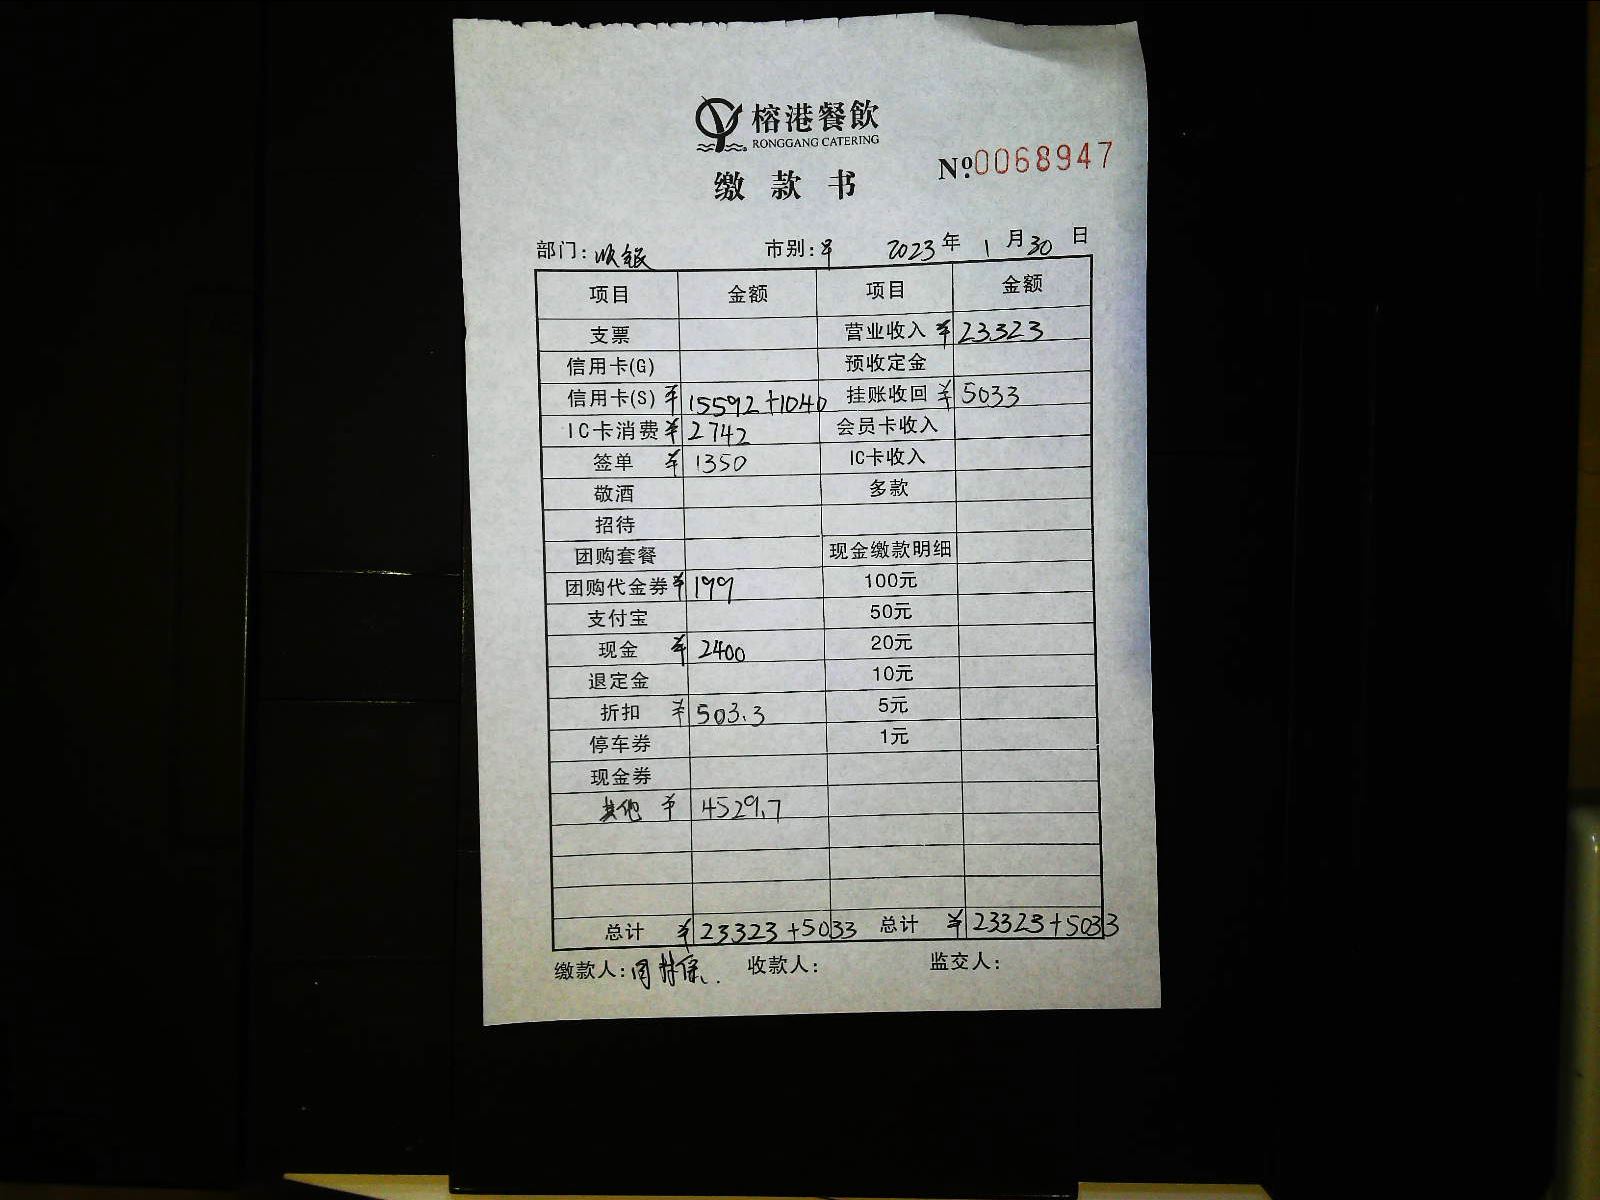 榕港餐飲
RONGGANG CATERING
缴款书
№0068947
部门: 收银 市别: 早 2023年 1月30日
项目 金额 项目 金额
支票 营业收入 ¥23323
信用卡(G) 预收定金
信用卡(S) ¥15592+1040 挂账收回 ¥5033
IC卡消费 ¥2742 会员卡收入
签单 ¥1350 IC卡收入
敬酒 多款
招待
团购套餐 现金缴款明细
团购代金券 ¥199 100元
支付宝 50元
现金 ¥2400 20元
退定金 10元
折扣 ¥503.3 5元
停车券 1元
现金券
其他 ¥4529.7
总计 ¥23323+5033 总计 ¥23323+5033
缴款人: 收款人: 监交人: